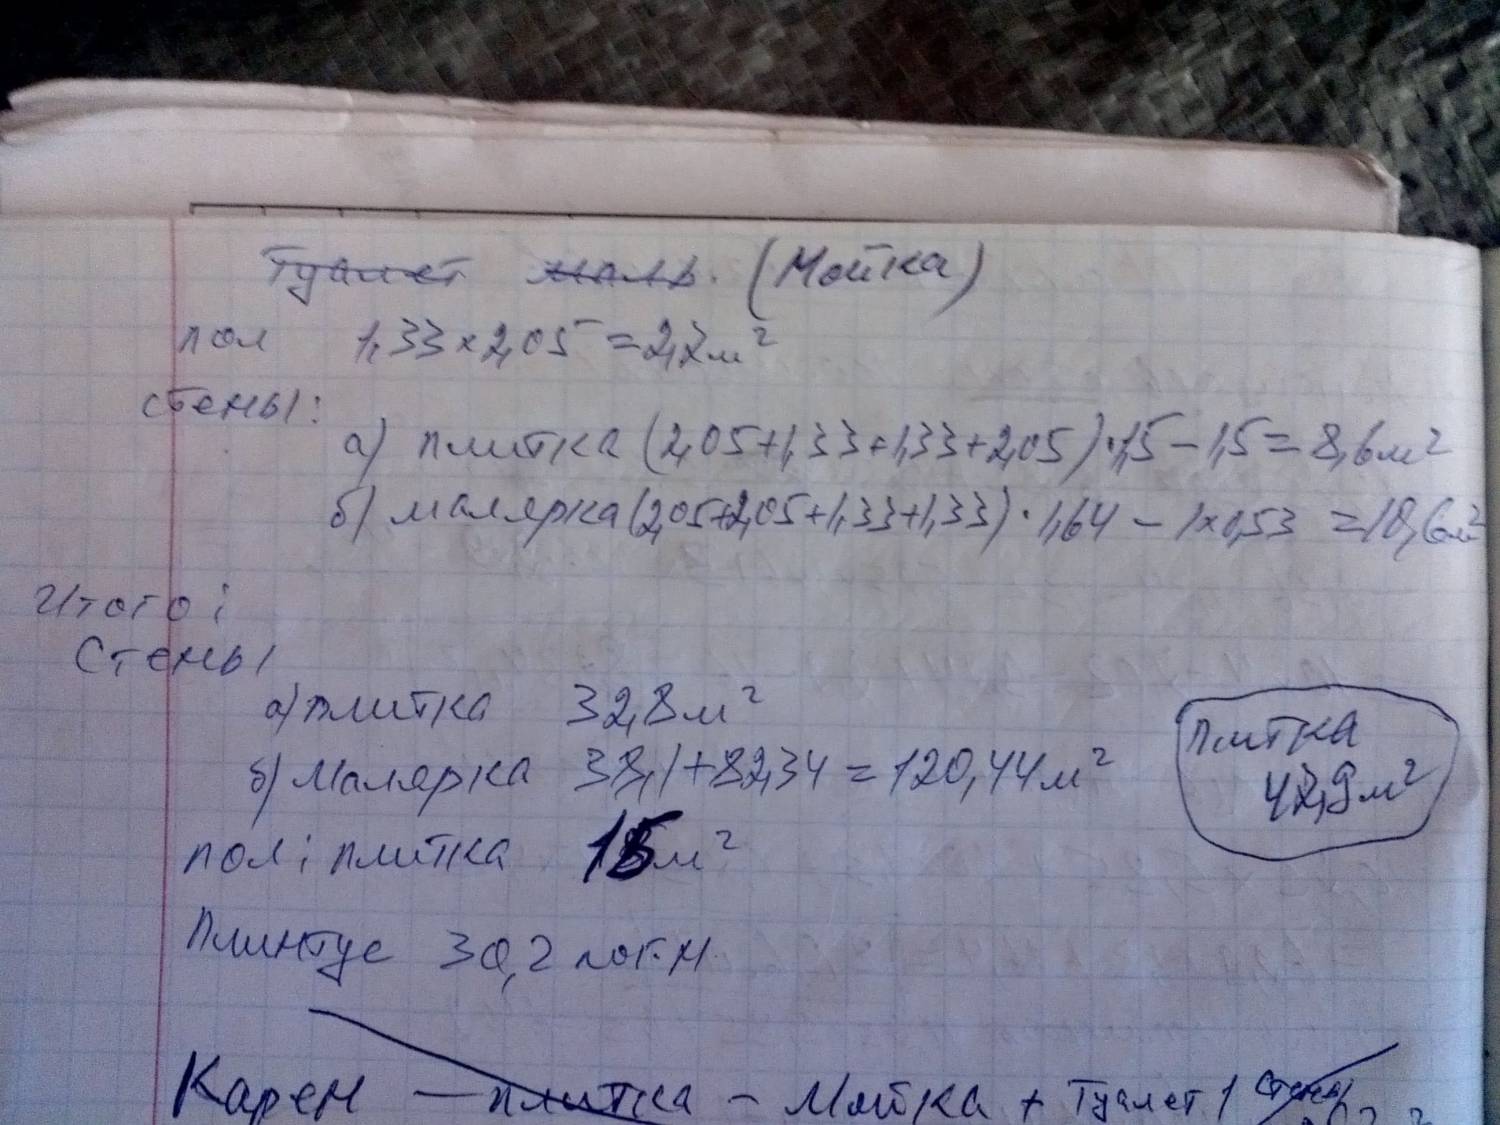 Туалет маль. (Мойка)
пол 1,33×2,05=2,7м²
стены:
а) плитка (2,05+1,33+1,33+2,05)·1,5-1,5=8,6м²
б) малярка (2,05+2,05+1,33+1,33)·1,64-1×0,53=10,6м²
Итого:
Стены
а) плитка 32,8м²
б) малярка 38,1+82,34=120,44м²
Плитка
м²
пол: плитка 15м²
Плинтус 30,2 пог.м.
Карен - плитка - Мойка + Туалет 1 стены